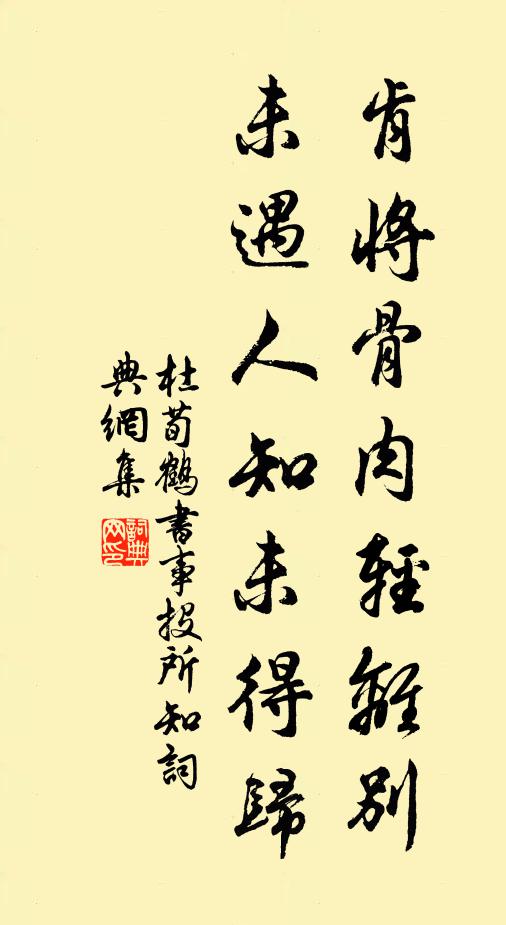 肯將骨肉輕離別
未遇人知未得歸
杜荀鶴書事投所知詞
典網集
詞典網印